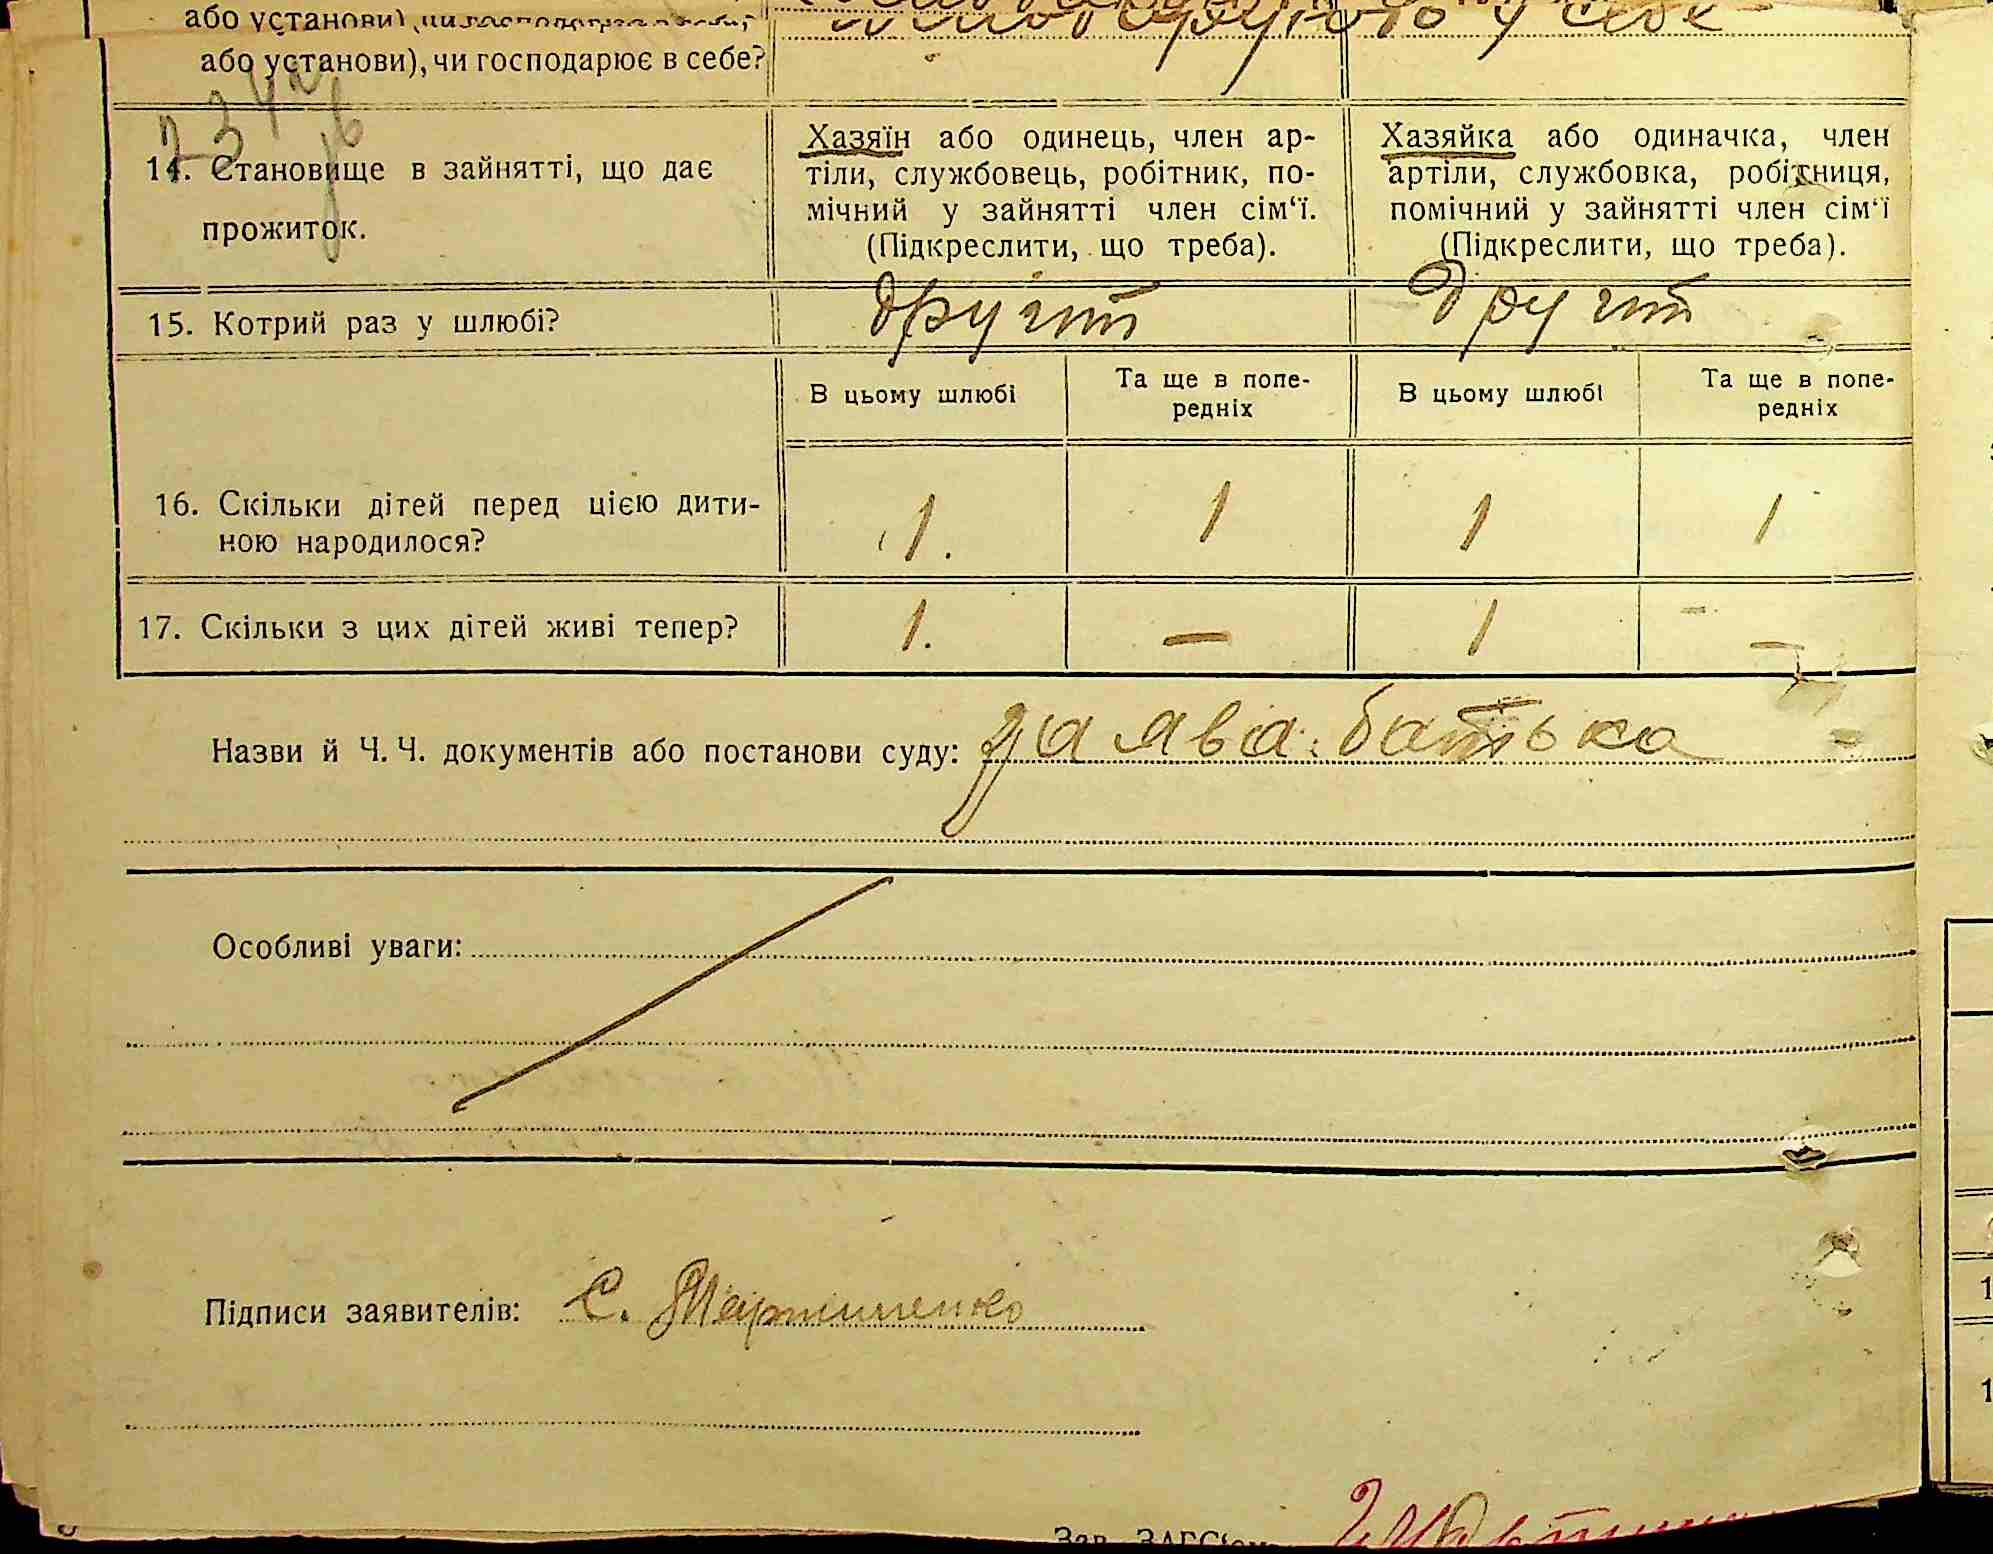 або установи), чи господарює в себе?
у себе
або установи), чи господарює в себе?
14. Становище в зайнятті, що дає
прожиток.
Хазяїн або одинець, член ар-
тіли, службовець, робітник, по-
мічний у зайнятті член сім‘ї.
(Підкреслити, що треба).
Хазяйка або одиначка, член
артіли, службовка, робітниця,
помічний у зайнятті член сім‘ї
(Підкреслити, що треба).
15. Котрий раз у шлюбі?
другий
другий
В цьому шлюбі
Та ще в попе-
редніх
В цьому шлюбі
Та ще в попе-
редніх
16. Скільки дітей перед цією дити-
ною народилося?
1.
1
1
1
17. Скільки з цих дітей живі тепер?
1.
—
1
—
Назви й Ч. Ч. документів або постанови суду: заява батька
Особливі уваги:
Підписи заявителів: С. Мартиненко
Зав. ЗАГС‘ом